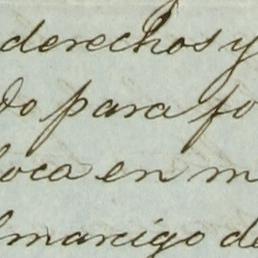 derechos y
do para fo
loca en m
lmarcigo de